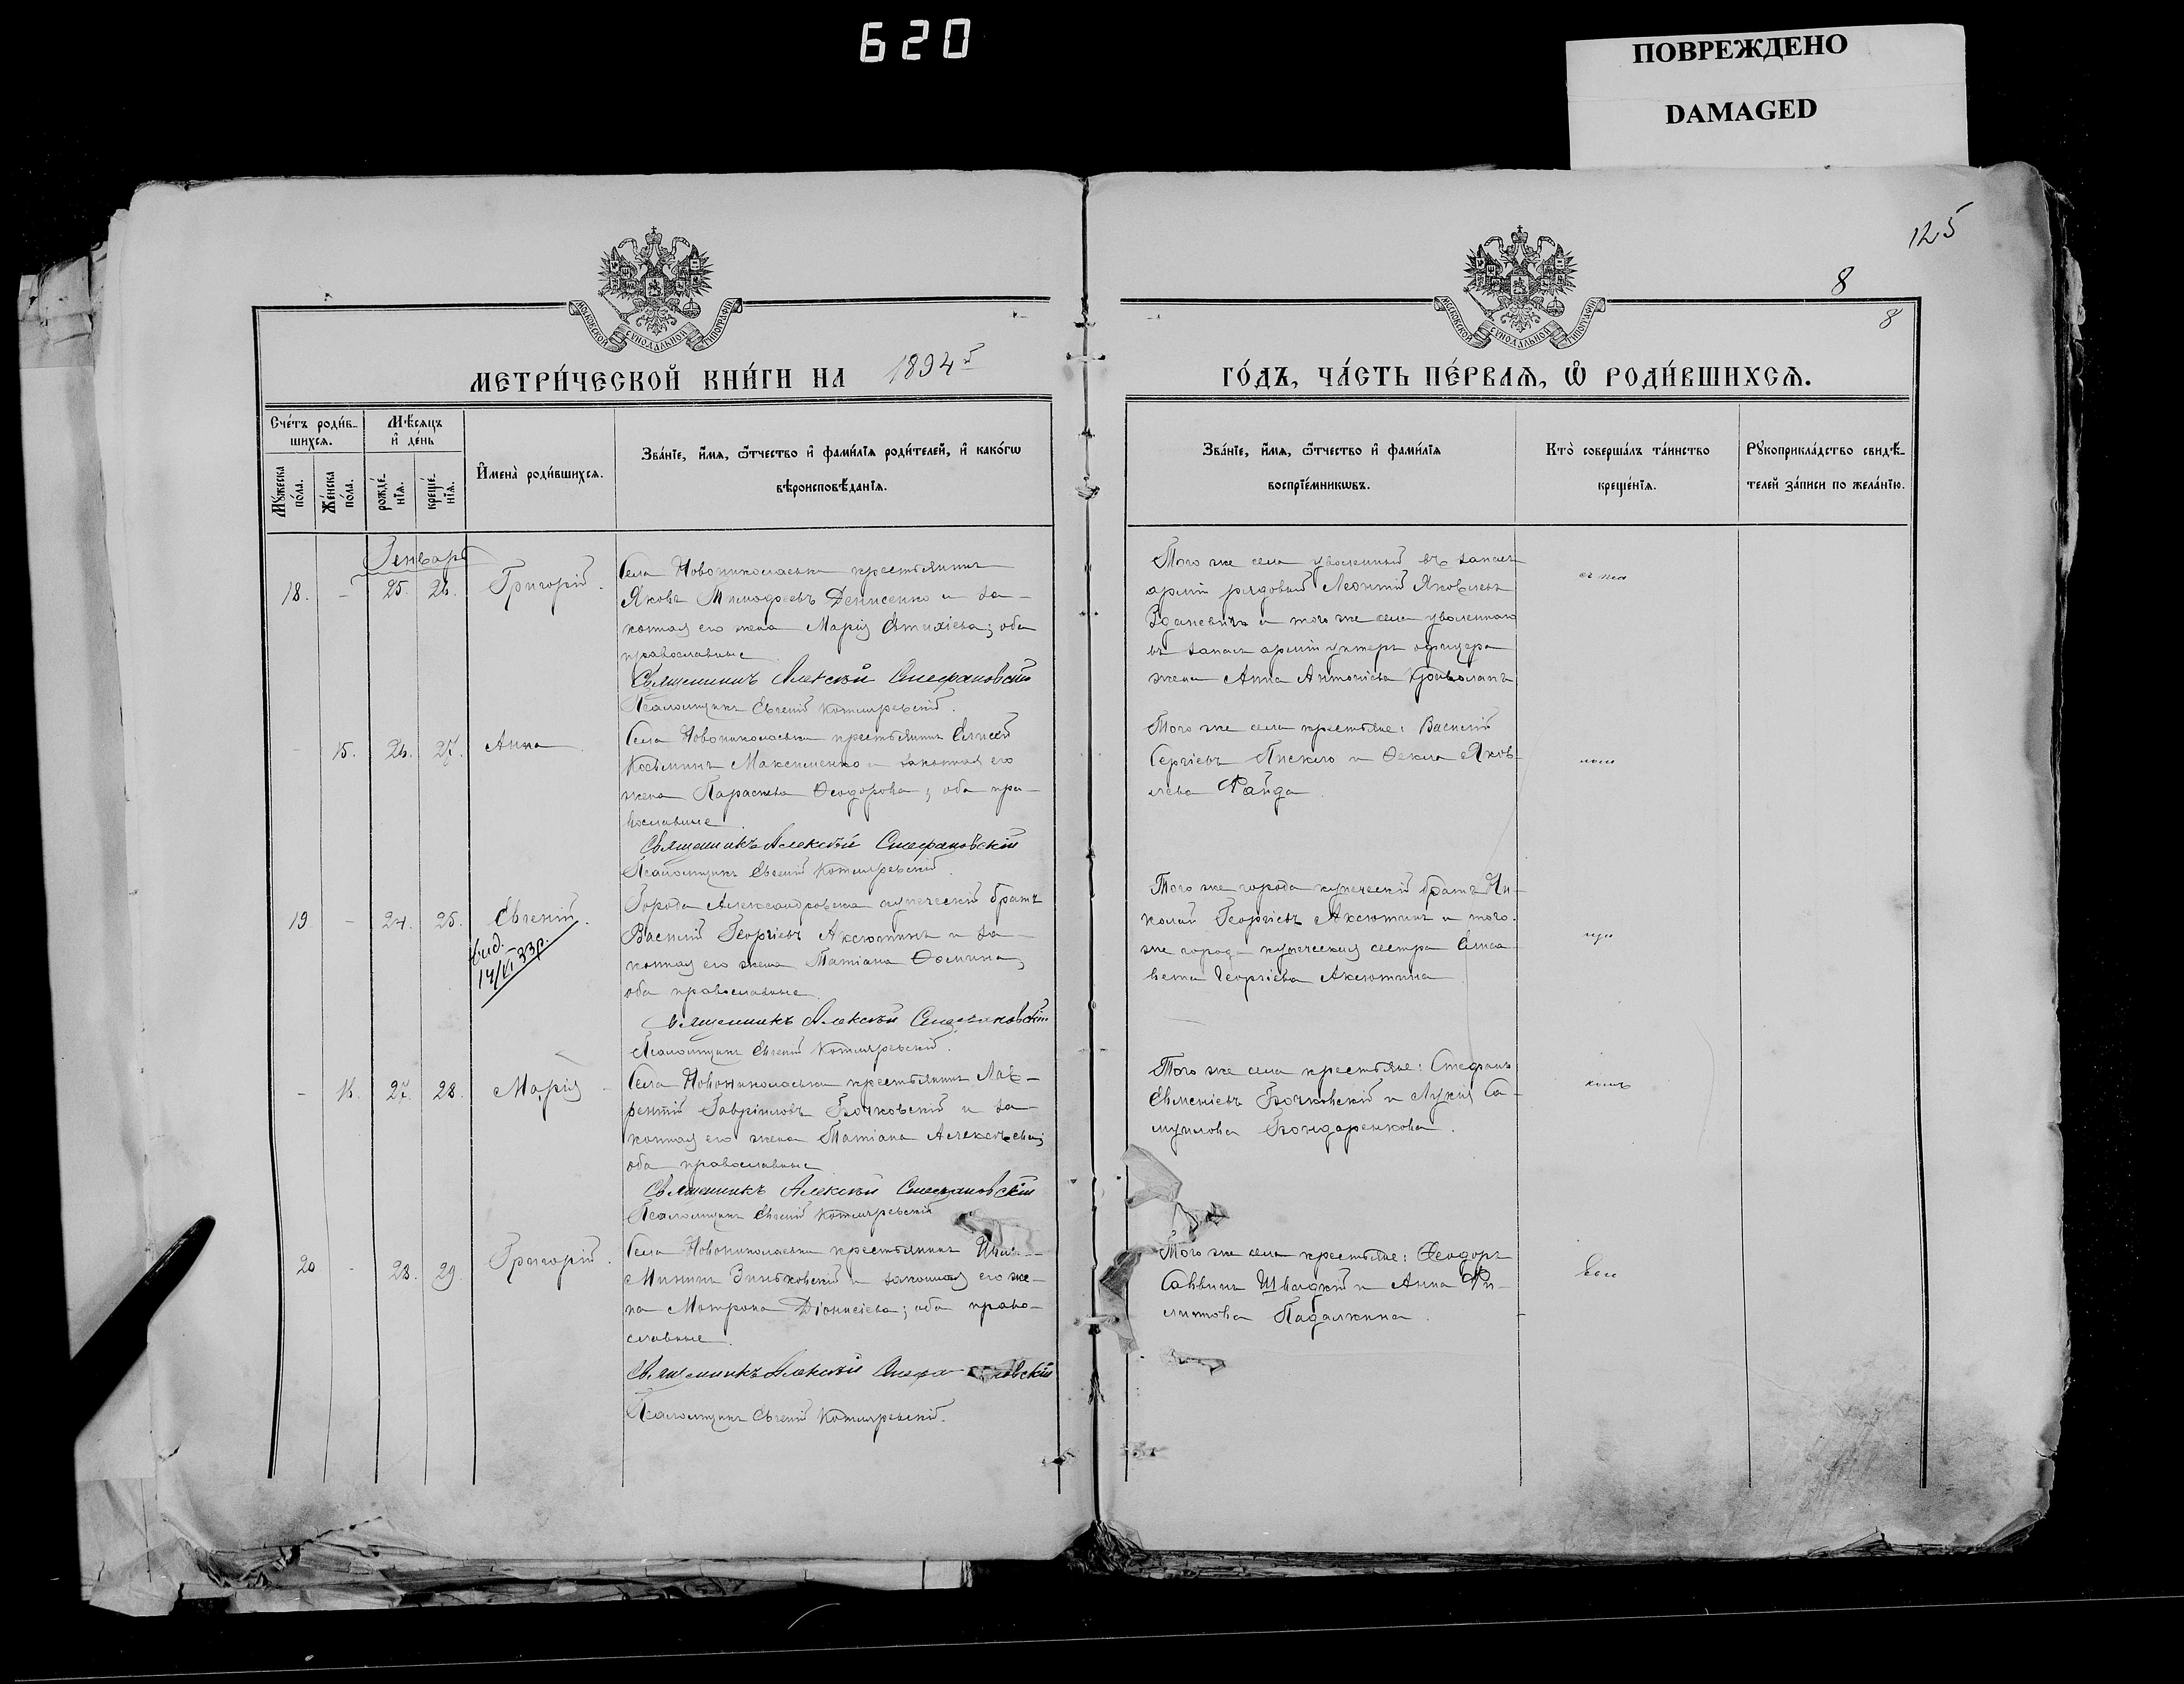 620
ПОВРЕЖДЕНО
DAMAGED
125
8
8
МОСКОВСКОЙ СѴНОДАЛЬНОЙ ТИПОГРАФІИ
МОСКОВСКОЙ СѴНОДАЛЬНОЙ ТИПОГРАФІИ
МЕТРИ́ЧЕСКОЙ КНИ́ГИ НА 1894
ГО́ДЪ, ЧА́СТЬ ПЕ́РВАѦ, Ѽ РОДИ́ВШИХСѦ.
Сче́тъ роди́в-
шихсѧ.
Мꙋжеска по́ла.
Же́нска по́ла.
Мѣ́сѧцъ и҆ де́нь
рожде́-
нїѧ.
креще́-
нїѧ.
И҆мена̀ роди́вшихсѧ.
Зва́нїе, и҆́мѧ, ѻ҆́тчество и҆ фами́лїѧ роди́телей, и҆ како́гѡ
вѣроисповѣ́данїѧ.
Зва́нїе, и҆́мѧ, ѻ҆́тчество и҆ фами́лїѧ
воспрїе́мникѡвъ.
Кто̀ соверша́лъ та́инство
креще́нїѧ.
Рꙋкоприкла́дство свидѣ́-
телей за́писи по жела́нїю.
Генварь
18. - 25. 26. Григорій.
Села Новониколаевки крестьянинъ
Яковъ Тимофеевъ Денисенко и за-
конная его жена Марія Евтихіева; оба
православные
Священникъ Алексѣй Стефановскій
Псаломщикъ Евгеній Котляревскій.
Того же села уволенный въ запасъ
арміи рядовый Леонтій Яковлевъ
Зданевичъ и того же села уволеннаго
въ запасъ арміи унтеръ офицера
жена Анна Антоніева
- 15. 26. 27. Анна
Села Новониколаевки крестьянинъ Елисей
Косьминъ Максименко и законная его
жена Параскева Ѳеодорова; оба пра-
вославные
Священникъ Алексѣй Стефановскій
Псаломщикъ Евгеній Котляревскій.
Того же села крестьяне: Василій
Сергіевъ и Ѳекла Яков-
лева Файда
19. - 24. 25. Евгеній.
14/VI 33р.
Города Александровска купеческій братъ
Василій Георгіевъ Аксютинъ и за-
конная его жена Татіана Ѳомина,
оба православные.
Священникъ Алексѣй Стефановскій
Псаломщикъ Евгеній Котляревскій.
Того же города купеческій братъ Ни-
колай Георгіевъ Аксютинъ и того-
же города купеческая сестра Елиса-
вета Георгіева Аксютина
- 16. 27. 28. Марія
Села Новониколаевки крестьянинъ Лав-
рентій Гавріиловъ Бочковскій и за-
конная его жена Татіана Алексѣева;
оба православные
Священникъ Алексѣй Стефановскій
Псаломщикъ Евгеній Котляревскій
Того же села крестьяне: Стефанъ
Евменіевъ Бочковскій и Лукія Са-
муилова Бондаренкова.
20 - 28. 29. Григорій.
Села Новониколаевки крестьянинъ
Мининъ Зиньковскій и законная его же-
на Матрона Діонисіева; оба право-
славные.
Священникъ Алексѣй
Псаломщикъ Евгеній Котляревскій.
Того же села крестьяне: Ѳеодоръ
Саввинъ Швыдкій и Анна Фи-
липпова Падалкина.